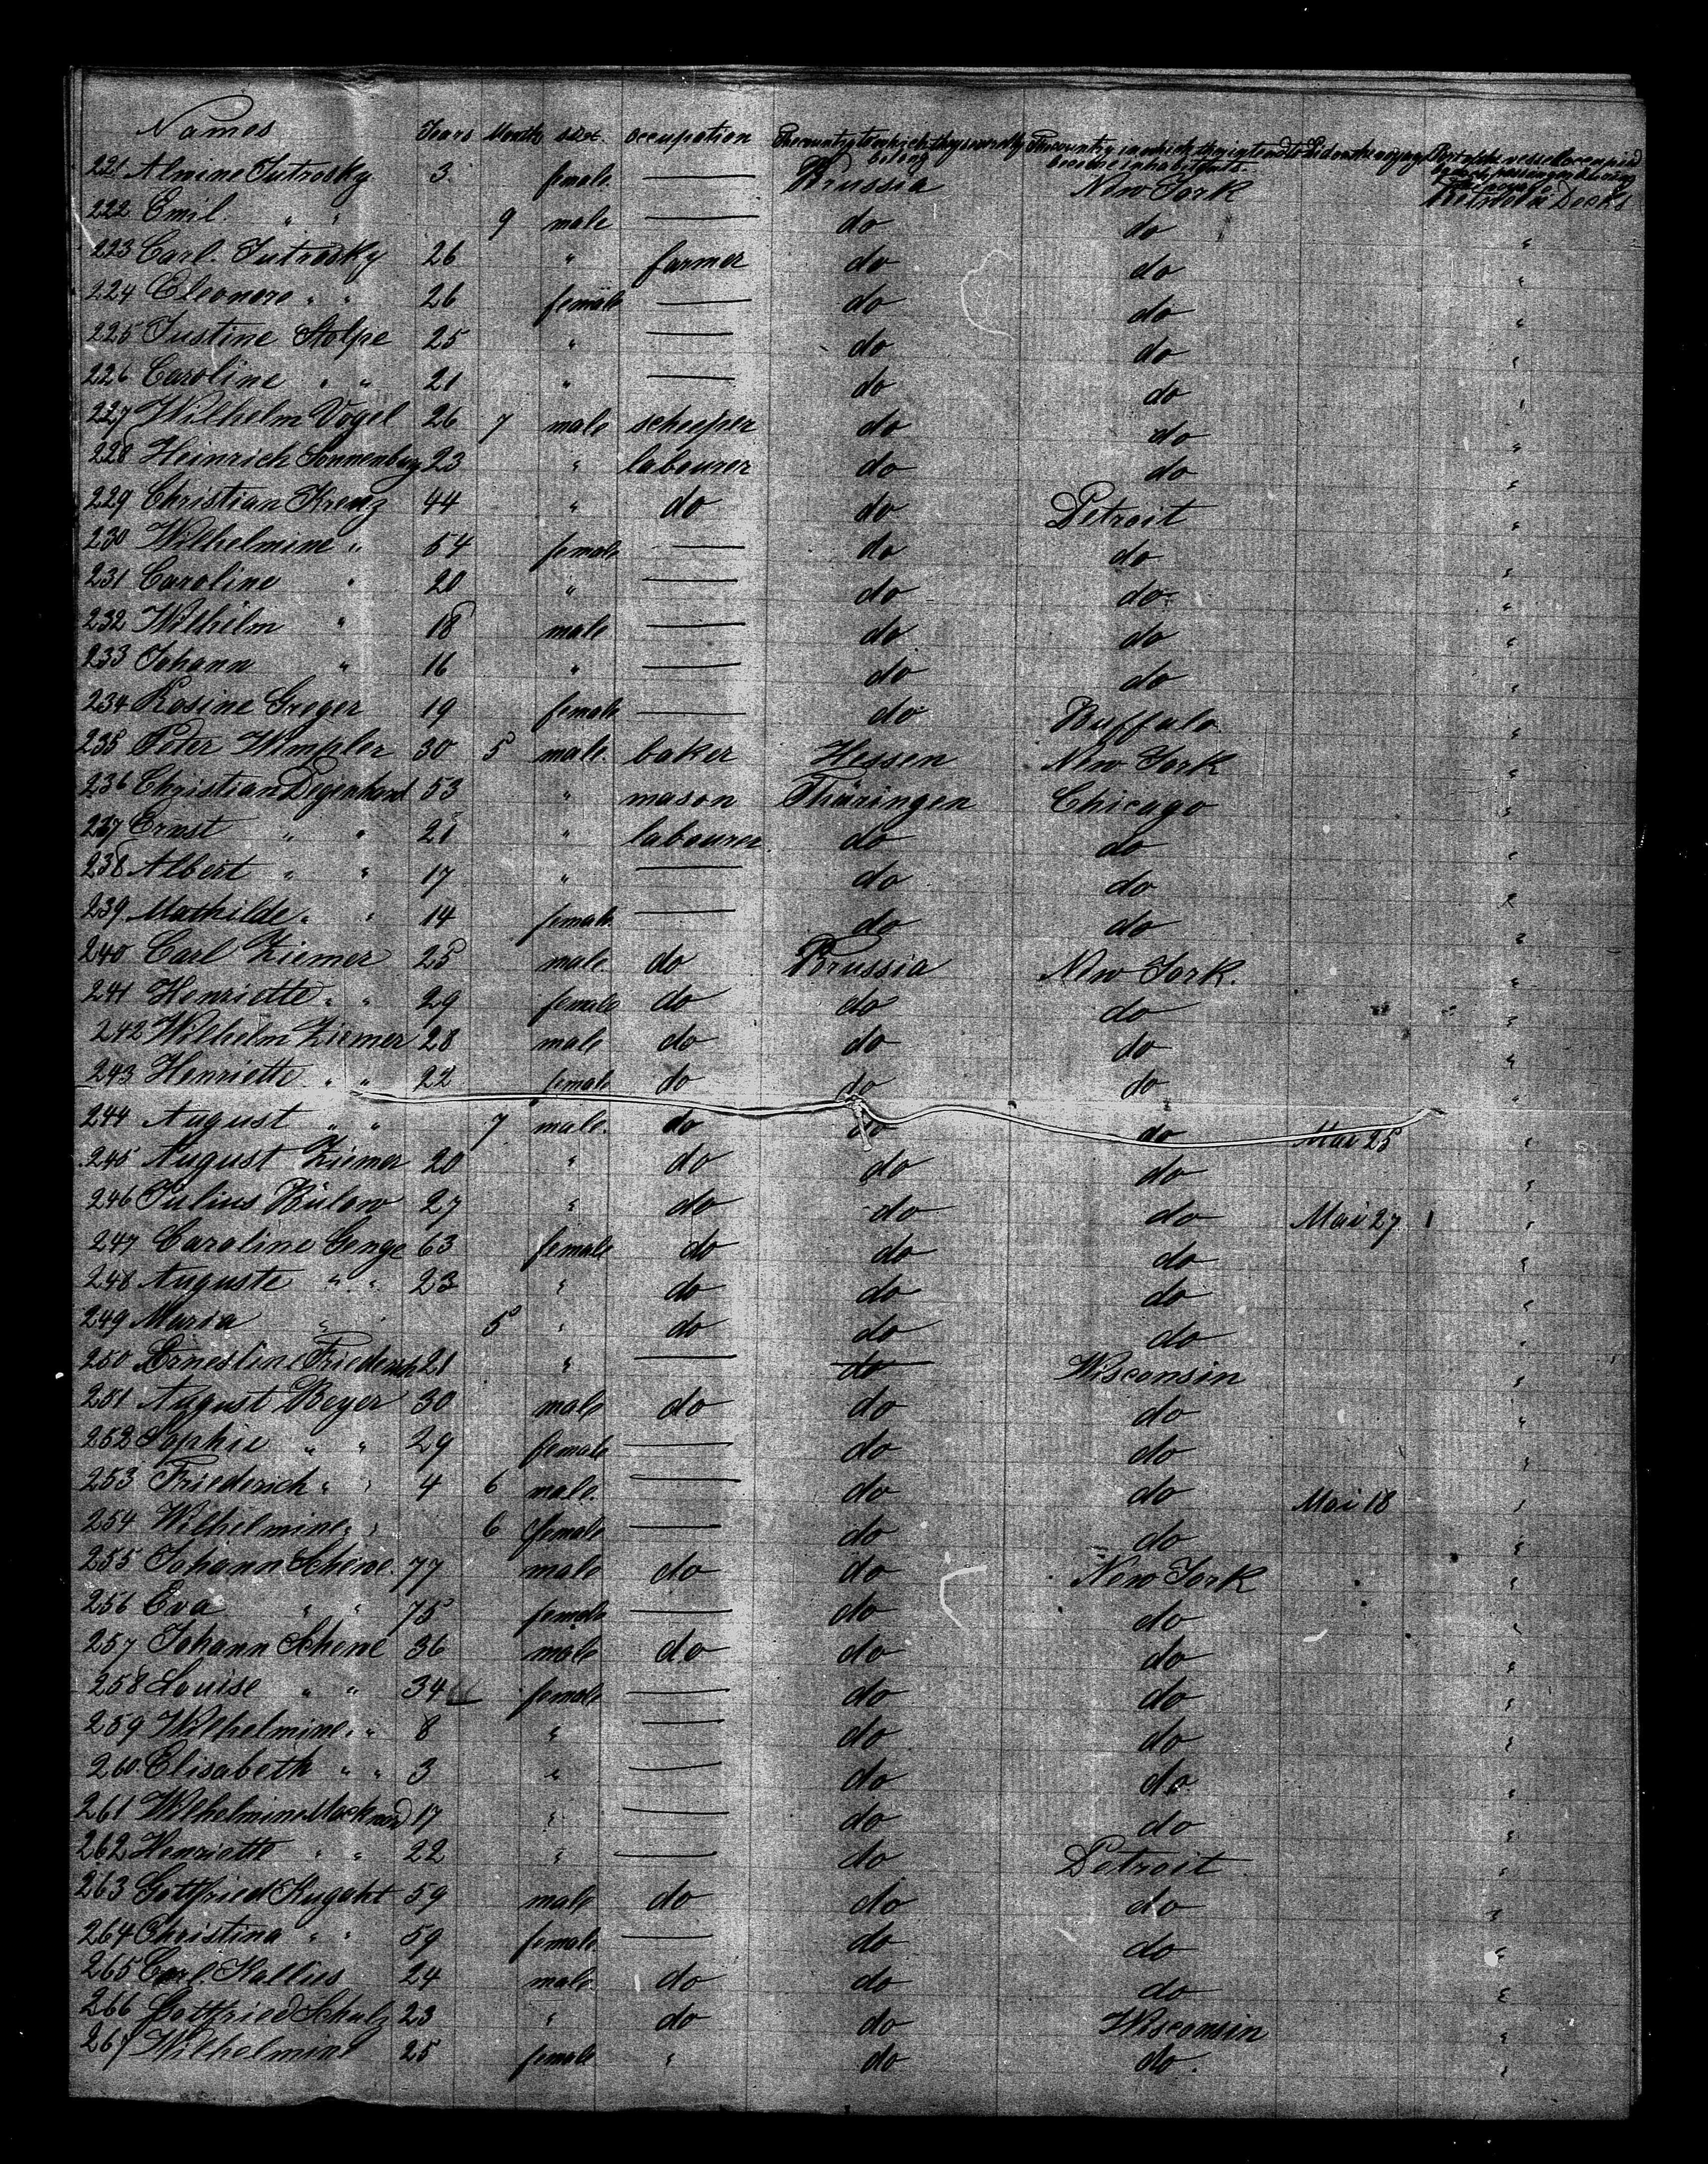 Names Years Month sex. occupation The country to which they severally belong The country in which they intend to become inhabitants. Did on the voyage Part of the vessel occupied by each passenger during the voyage
221 Almine Jutrosky 3 female — Prussia New York Between Decks
222 Emil " " 9 male — do do "
223 Carl Jutrosky 26 " farmer do do "
224 Eleonore " " 26 female — do do "
225 Justine Stolpe 25 " — do do "
226 Caroline " " 21 " — do do "
227 Wilhelm Vogel 26 7 male scheeper do do "
228 Heinrich Sonnenberg 23 " labourer do do "
229 Christian Krenz 44 " do do Detroit "
230 Wilhelmine " 54 female — do do "
231 Caroline " 20 " — do do "
232 Wilhelm " 18 male — do do "
233 Johann " 16 " — do do "
234 Rosine Greger 19 female — do Buffalo "
235 Peter Wimpler 30 5 male. baker Hessen New York "
236 Christian Degenhard 53 " mason Thüringen Chicago "
237 Ernst " " 21 " labourer do do "
238 Albert " " 17 " — do do "
239 Mathilde " " 14 female — do do "
240 Carl Ziemer 25 male do Prussia New York. "
241 Henriette " " 29 female do do do "
242 Wilhelm Ziemer 28 male do do do "
243 Henriette " " 22 female do do do "
244 August " " 7 male. do do do Mai 25 "
245 August Ziemer 20 " do do do "
246 Julius Bülow 27 " do do do Mai 27 "
247 Caroline Genge 63 female do do do "
248 Auguste " " 23 " do do do "
249 Maria " " 5 " do do do "
250 Ernestine Friederich 21 " — do Wisconsin "
251 August Beyer 30 male do do do "
252 Sophie " " 29 female — do do "
253 Friederich " " 4 6 male. — do do Mai 18 "
254 Wilhelmine " " 6 female — do do "
255 Johann Schene 77 male do do New York "
256 Eva " " 75 female — do do "
257 Johann Schene 36 male do do do "
258 Louise " " 34 female — do do "
259 Wilhelmine " " 8 " — do do "
260 Elisabeth " " 3 " — do do "
261 Wilhelmine 17 " — do do "
262 Henriette " " 22 " — do Detroit "
263 Gottfried 59 male do do do "
264 Christina " " 59 female — do do "
265 Carl Kallies 24 male do do do "
266 Gottfried Schulz 23 " do do Wisconsin "
267 Wilhelmine 25 female " do do. "